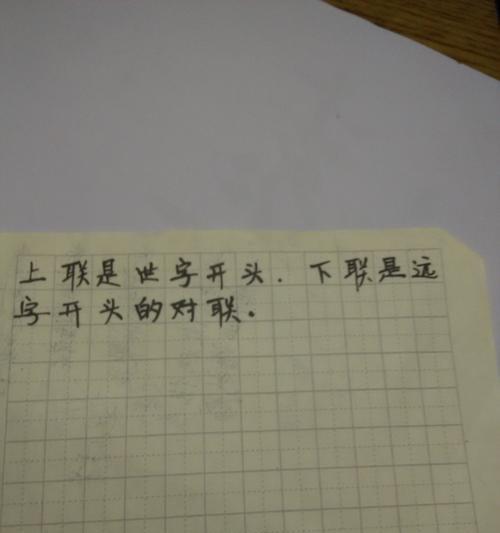 上联是世字开头.下联是远
字开头的对联.